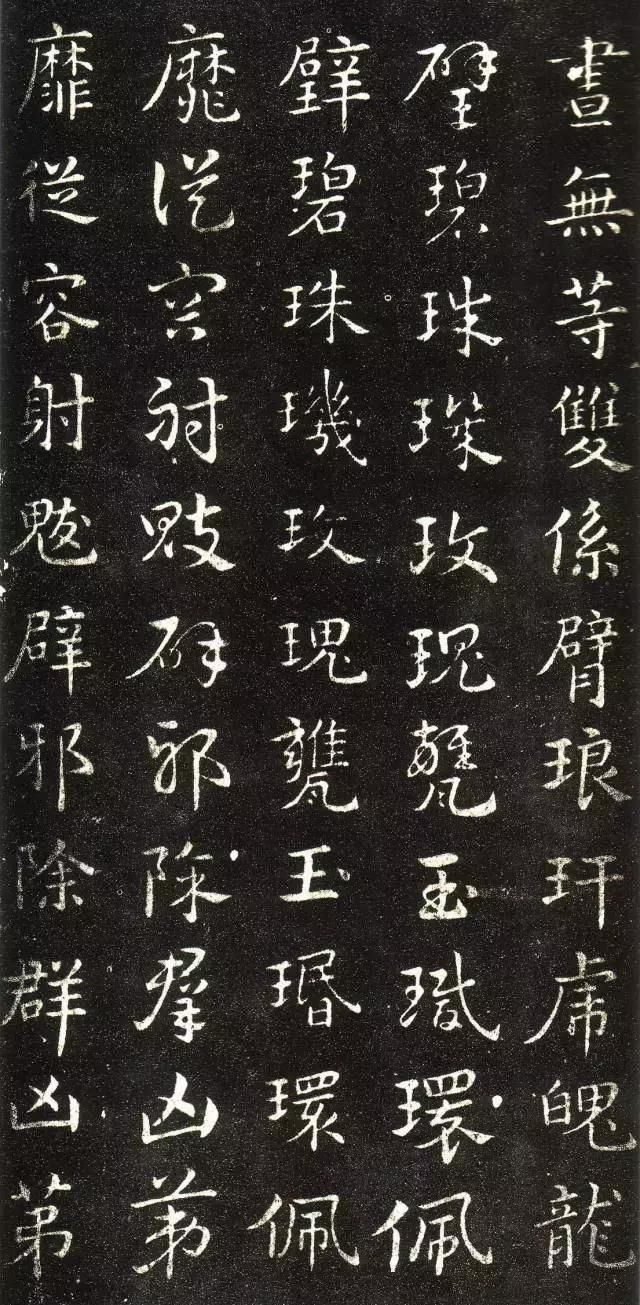 畫無等雙係臂琅玕虎魄龍
璧碧珠璣玫瑰甕玉環佩
璧碧珠璣玫瑰甕玉環佩
靡從容射魃辟邪除群凶第
靡從容射魃辟邪除群凶第